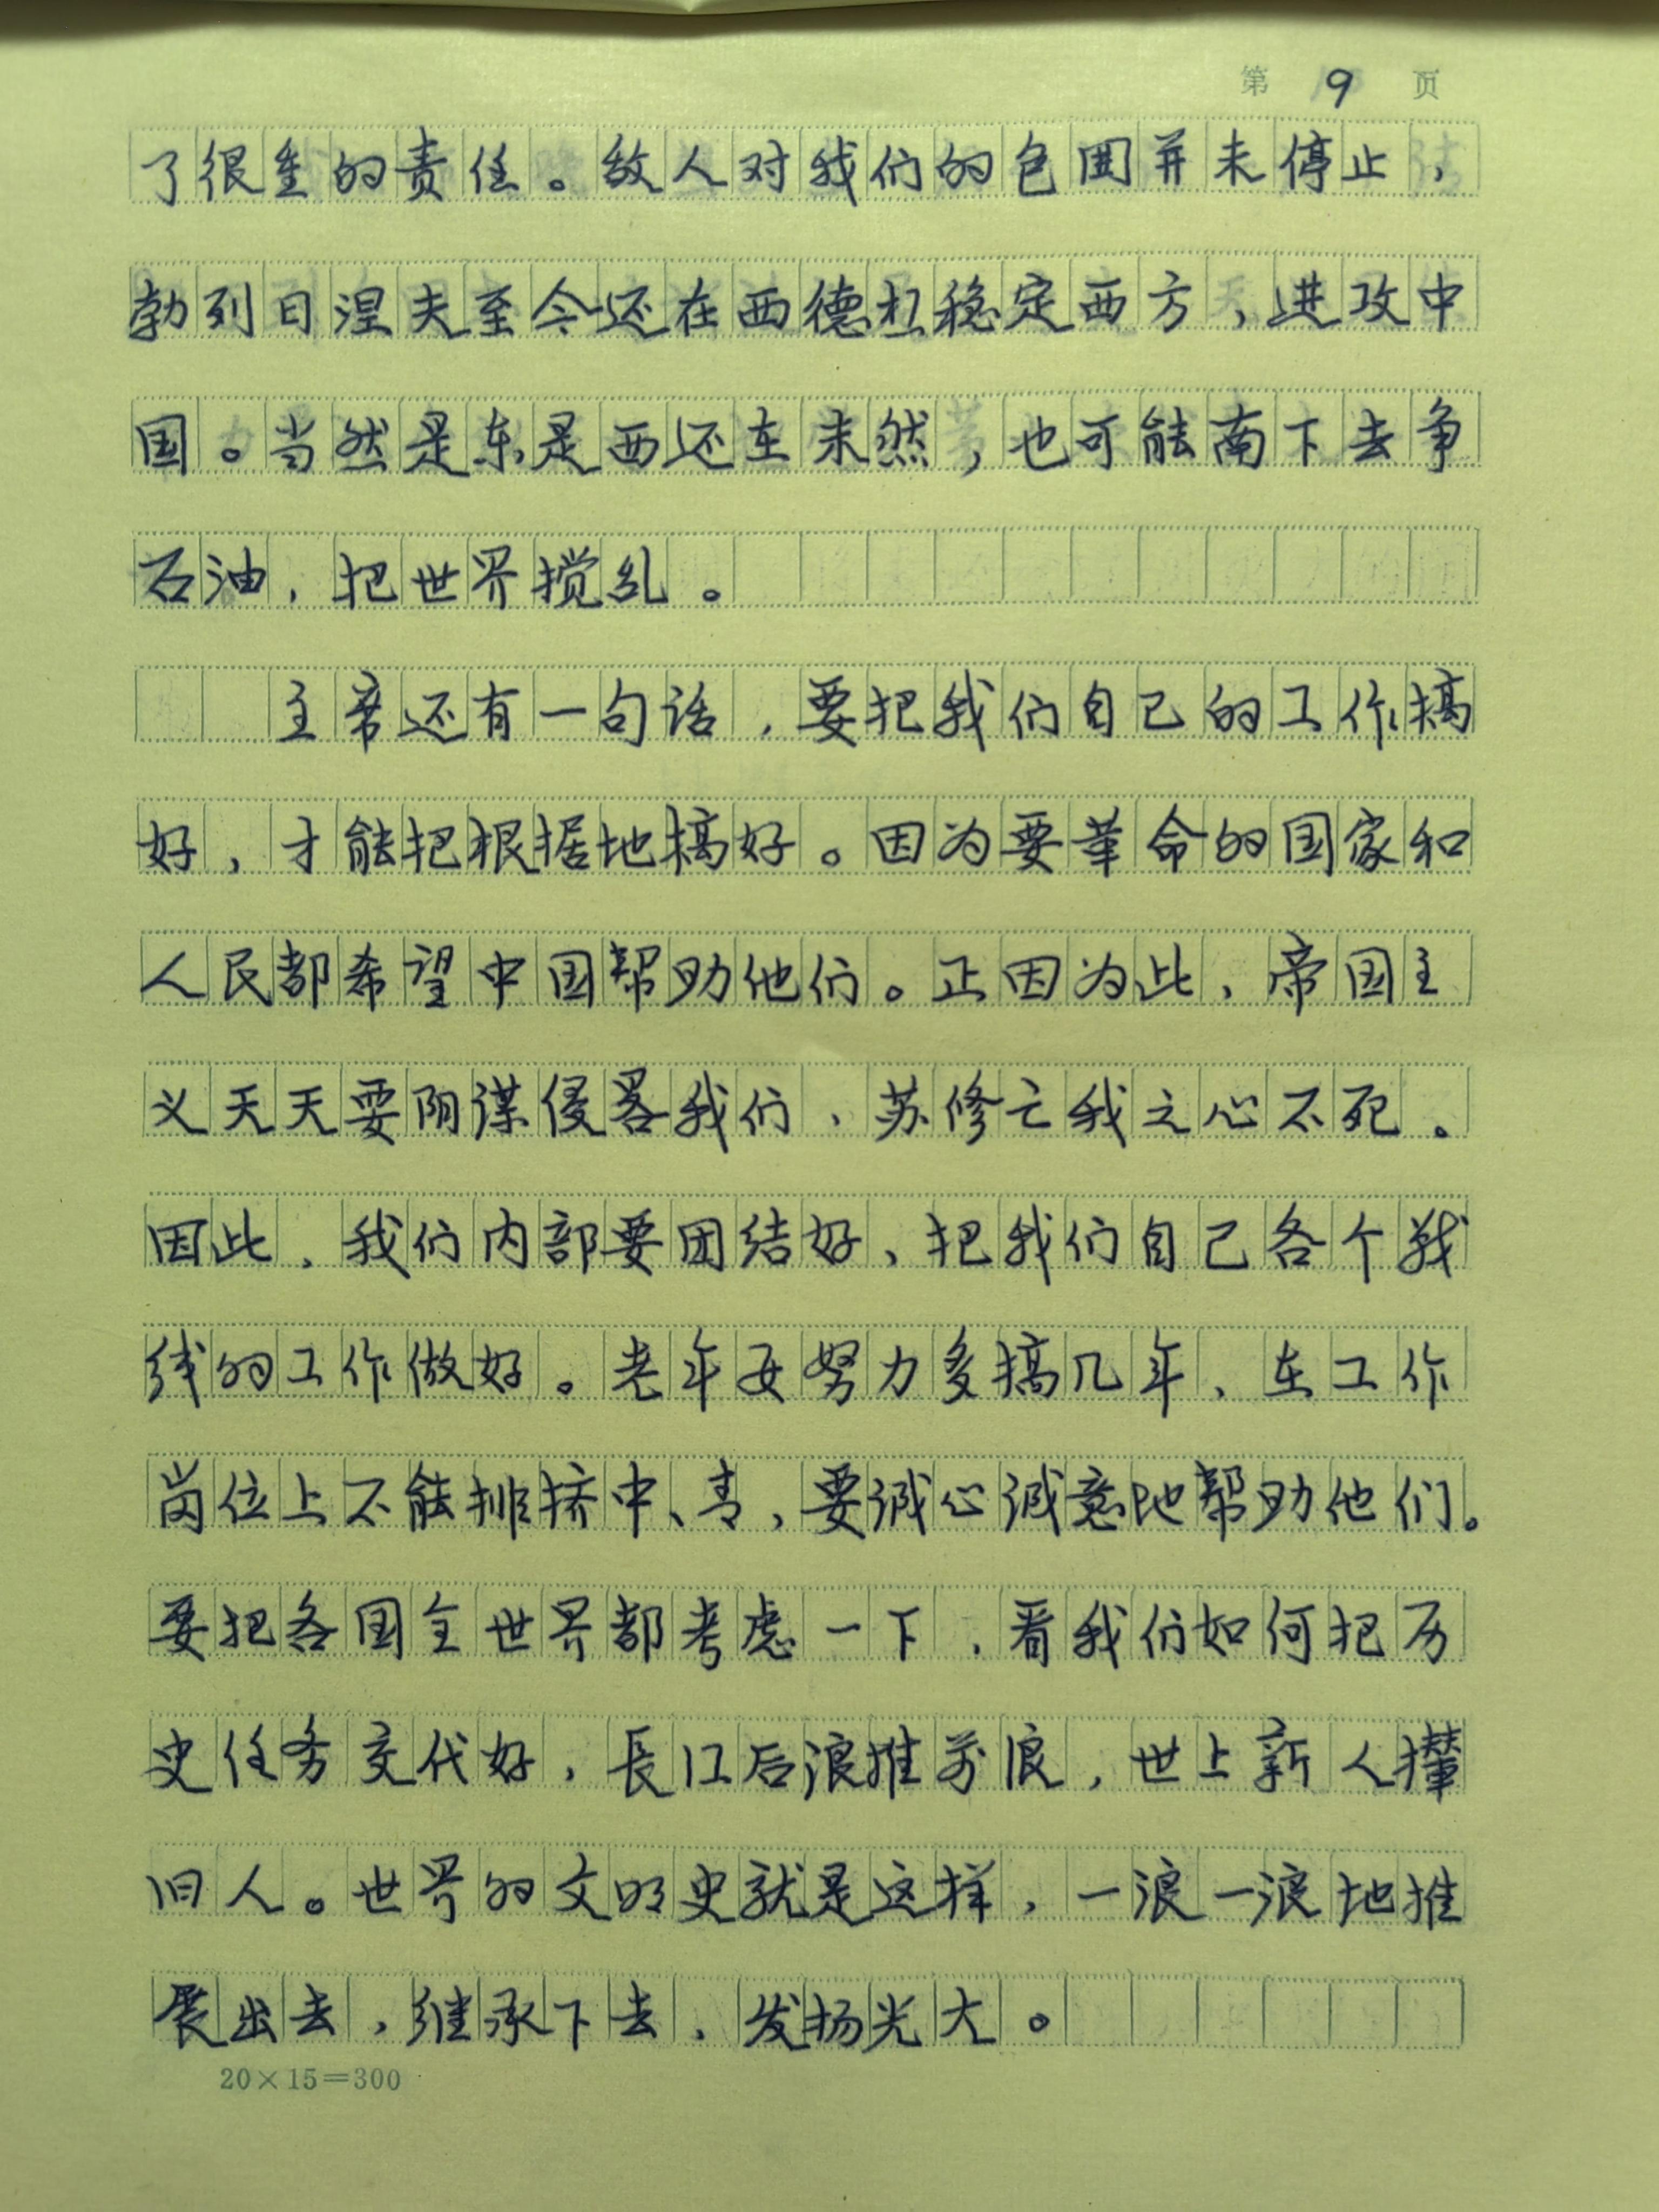 第 9 页
了很重的责任。敌人对我们的包围并未停止，
勃列日涅夫至今还在西德想稳定西方，进攻中
国。当然是东是西还在未然，也可能南下去争
石油，把世界搅乱。
主席还有一句话，要把我们自己的工作搞
好，才能把根据地搞好。因为要革命的国家和
人民都希望中国帮助他们。正因为此，帝国主
义天天要阴谋侵略我们，苏修亡我之心不死。
因此，我们内部要团结好，把我们自己各个战
线的工作做好。老年要努力多搞几年，在工作
岗位上不能排挤中、青，要诚心诚意地帮助他们。
要把各国全世界都考虑一下，看我们如何把历
史任务交代好，長江后浪推前浪，世上新人攆
旧人。世界的文明史就是这样，一浪一浪地推
展出去，继承下去，发扬光大。
20×15=300